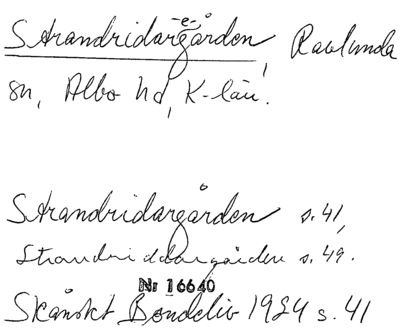 -e-
Strandridargården, Ravlunda
sn, Albo hd, K-län.
Strandridargården s. 41,
Strandriddargården s. 49.
Nr 16640
Skånskt Bondeliv 1924 s. 41